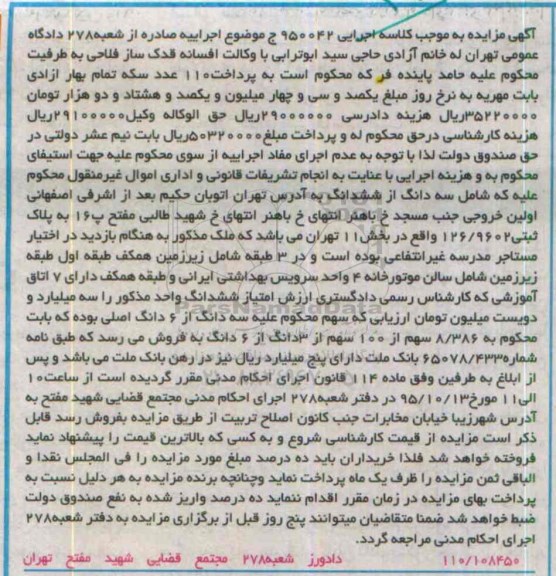 آگهی مزایده به موجب کلاسه اجرایی ۹۵۰۰۴۲ ج موضوع اجراییه صادره از شعبه۲۷۸ دادگاه
عمومی تهران له خانم آزادی حاجی سید ابوترابی با وکالت افسانه قدک ساز فلاحی به طرفیت
محکوم علیه حامد پاینده فر که محکوم است به پرداخت۱۱۰ عدد سکه تمام بهار ازادی
بابت مهریه به نرخ روز مبلغ یکصد و سی و چهار میلیون و یکصد و هشتاد و دو هزار تومان
۳۵۲۲۰۰۰۰ریال هزینه دادرسی ۲۹۰۰۰۰۰۰ریال حق الوکاله وکیل۲۹۱۰۰۰۰۰ریال
هزینه کارشناسی درحق محکوم له و پرداخت مبلغ۵۰۳۲۰۰۰۰ریال بابت نیم عشر دولتی در
حق صندوق دولت لذا با توجه به عدم اجرای مفاد اجراییه از سوی محکوم علیه جهت استیفای
محکوم به و هزینه اجرایی با عنایت به انجام تشریفات قانونی و اداری اموال غیرمنقول محکوم
علیه که شامل سه دانگ از ششدانگ به آدرس تهران اتوبان حکیم بعد از اشرفی اصفهانی
اولین خروجی جنب مسجد خ باهنر انتهای خ باهنر انتهای خ شهید طالبی مفتح پ۱۶ به پلاک
ثبتی۱۲۶/۹۶۰۲ واقع در بخش۱۱ تهران می باشد که ملک مذکور به هنگام بازدید در اختیار
مستاجر مدرسه غیرانتفاعی بوده است و در ۳ طبقه شامل زیرزمین همکف طبقه اول طبقه
زیرزمین شامل سالن موتورخانه ۴ واحد سرویس بهداشتی ایرانی و طبقه همکف دارای ۷ اتاق
آموزشی که کارشناس رسمی دادگستری ارزش امتیاز ششدانگ واحد مذکور را سه میلیارد و
دویست میلیون تومان ارزیابی که سهم محکوم علیه سه دانگ از ۶ دانگ اصلی بوده که بابت
محکوم به ۸/۳۸۶ سهم از ۱۰۰ سهم از ۳دانگ از ۶ دانگ به فروش می رسد که طبق نامه
شماره۶۵۰۷۸/۴۳۳ بانک ملت دارای پنج میلیارد ریال نیز در رهن بانک ملت می باشد و پس
از ابلاغ به طرفین وفق ماده ۱۱۴ قانون اجرای احکام مدنی مقرر گردیده است از ساعت۱۰
الی۱۱ مورخ۹۵/۱۰/۱۳ در دفتر شعبه۲۷۸ اجرای احکام مدنی مجتمع قضایی شهید مفتح به
آدرس شهرزیبا خیابان مخابرات جنب کانون اصلاح تربیت از طریق مزایده بفروش رسد قابل
ذکر است مزایده از قیمت کارشناسی شروع و به کسی که بالاترین قیمت را پیشنهاد نماید
فروخته خواهد شد فلذا خریداران باید ده درصد مبلغ مورد مزایده را فی المجلس نقدا و
الباقی ثمن مزایده را ظرف یک ماه پرداخت نماید وچنانچه برنده مزایده به هر دلیل نسبت به
پرداخت بهای مزایده در زمان مقرر اقدام ننماید ده درصد واریز شده به نفع صندوق دولت
ضبط خواهد شد ضمنا متقاضیان میتوانند پنج روز قبل از برگزاری مزایده به دفتر شعبه۲۷۸
اجرای احکام مدنی مراجعه گردد.
۱۱۰/۱۰۸۴۵۰ دادورز شعبه۲۷۸ مجتمع قضایی شهید مفتح تهران